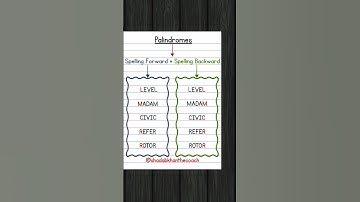 Palindromes
Spelling Forward = Spelling Backward
LEVEL LEVEL
MADAM MADAM
CIVIC CIVIC
REFER REFER
ROTOR ROTOR
@shadabkhanthecoach